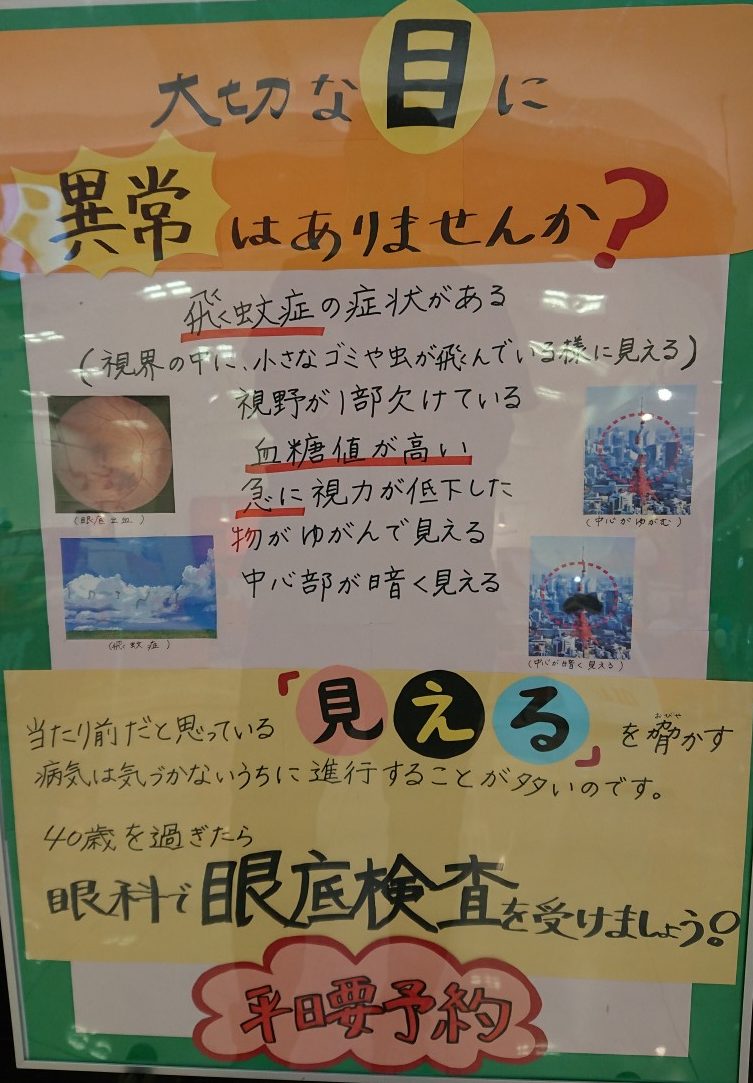 大切な目に
異常はありませんか?
飛く蚊症の症状がある
(視界の中に、小さなゴミや虫が飛んでいる様に見える)
視野が1部欠けている
血糖値が高い
急に視力が低下した
物がゆがんで見える
中心部が暗く見える
(眼底出血)
(飛く蚊症)
(中心がゆがむ)
(中心が暗く見える)
当たり前だと思っている「見える」を脅かす
おびや
病気は気づかないうちに進行することが多いのです。
40歳を過ぎたら
眼科で眼底検査を受けましょう!
平日要予約